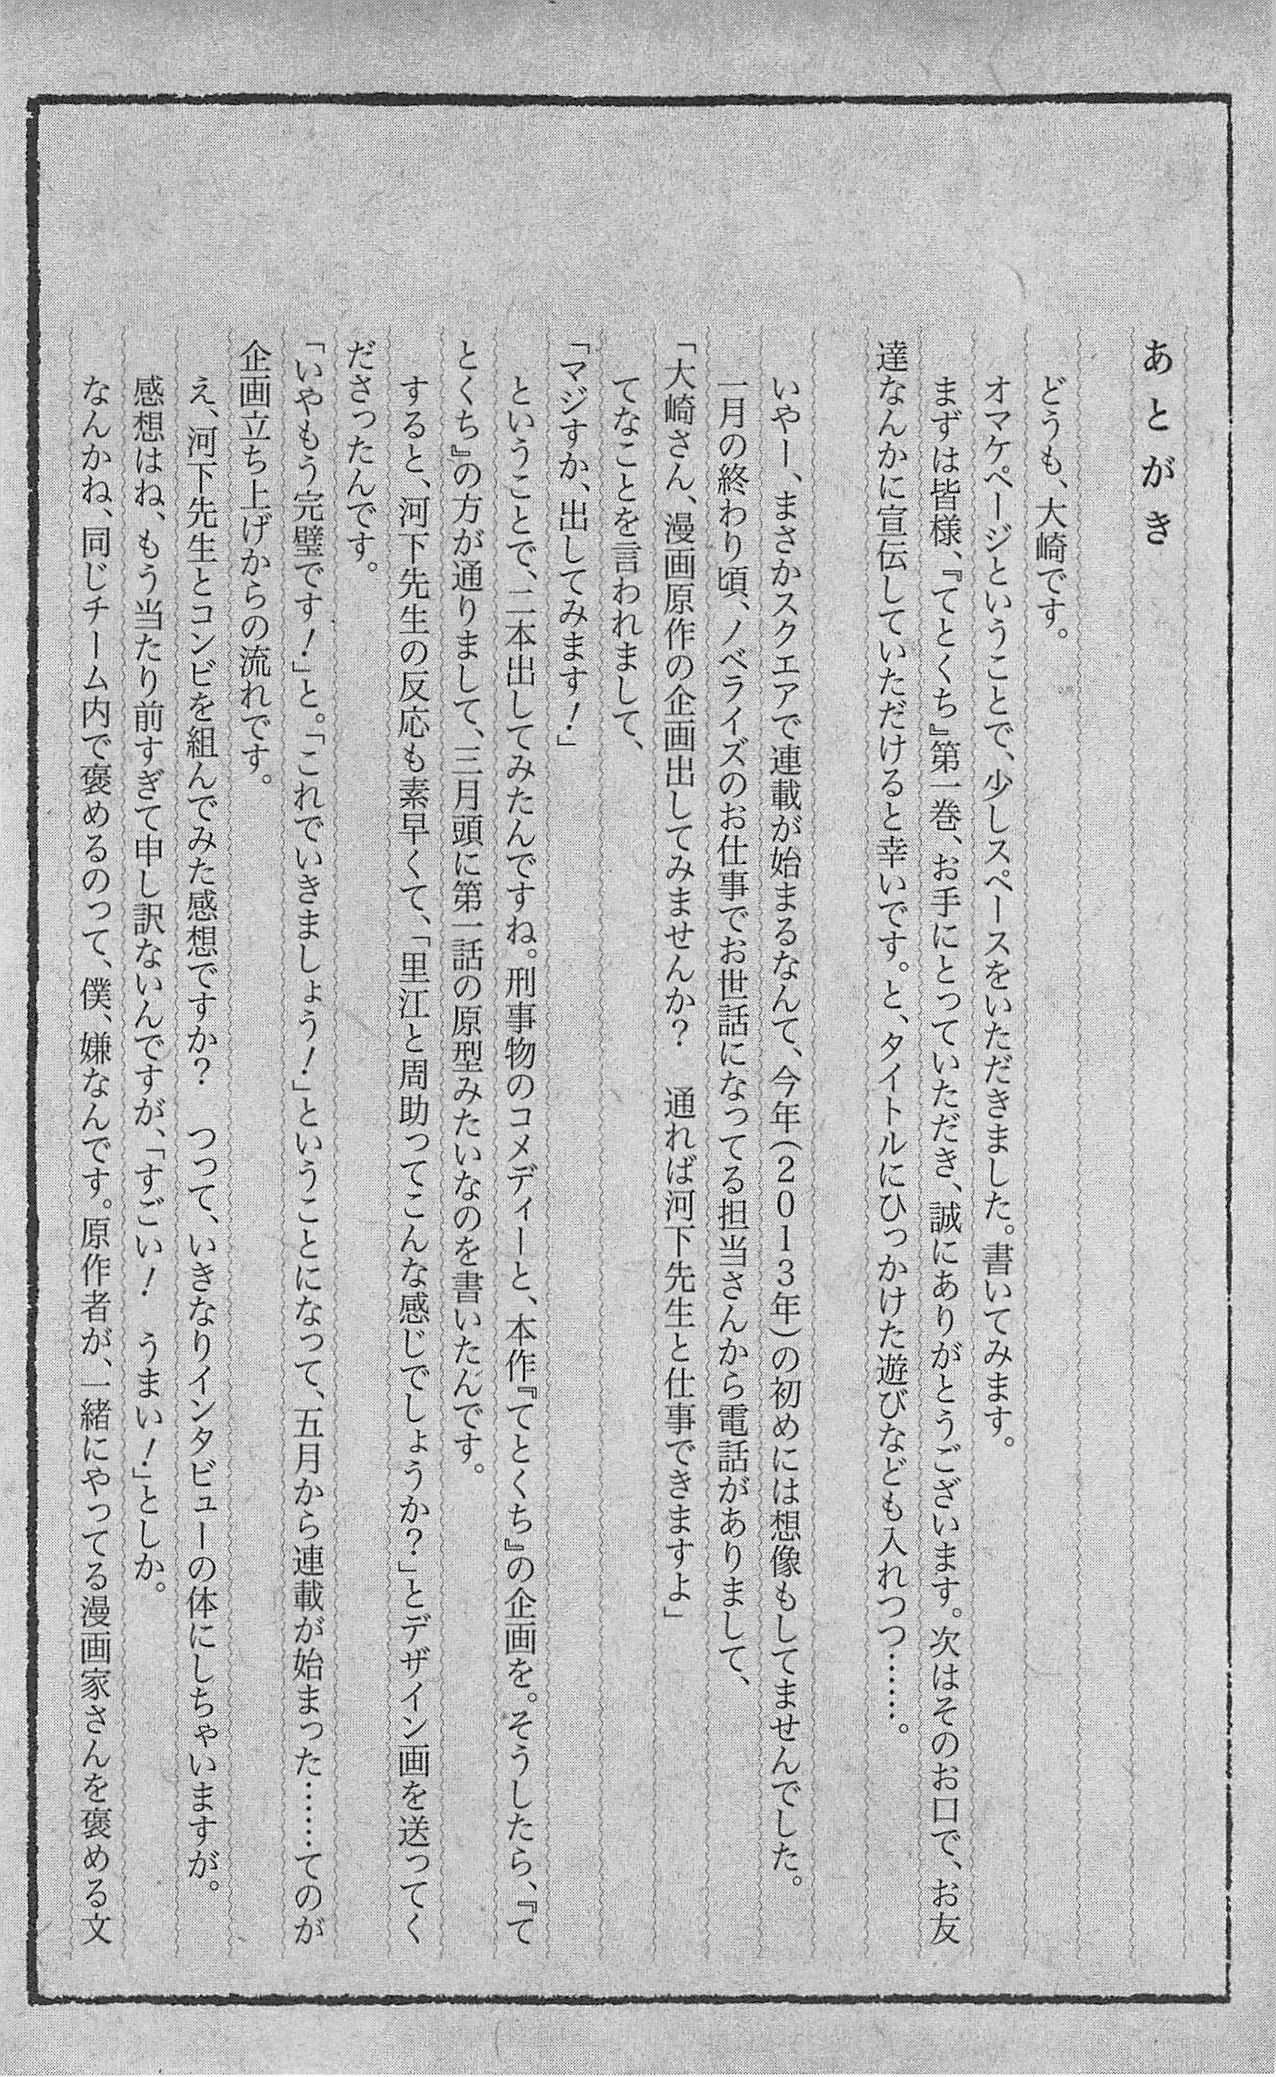 あとがき
どうも、大崎です。
オマケページということで、少しスペースをいただきました。書いてみます。
まずは皆様、『てとくち』第一巻、お手にとっていただき、誠にありがとうございます。次はそのお口で、お友
達なんかに宣伝していただけると幸いです。と、タイトルにひっかけた遊びなども入れつつ……。
いやー、まさかスクエアで連載が始まるなんて、今年（２０１３年）の初めには想像もしてませんでした。
一月の終わり頃、ノベライズのお仕事でお世話になってる担当さんから電話がありまして、
「大崎さん、漫画原作の企画出してみませんか？　通れば河下先生と仕事できますよ」
てなことを言われまして、
「マジすか、出してみます！」
ということで、二本出してみたんですね。刑事物のコメディーと、本作『てとくち』の企画を。そうしたら、『て
とくち』の方が通りまして、三月頭に第一話の原型みたいなのを書いたんです。
すると、河下先生の反応も素早くて、「里江と周助ってこんな感じでしょうか？」とデザイン画を送ってく
ださったんです。
「いやもう完璧です！」と。「これでいきましょう！」ということになって、五月から連載が始まった……てのが
企画立ち上げからの流れです。
え、河下先生とコンビを組んでみた感想ですか？　つって、いきなりインタビューの体にしちゃいますが。
感想はね、もう当たり前すぎて申し訳ないんですが、「すごい！　うまい！」としか。
なんかね、同じチーム内で褒めるのって、僕、嫌なんです。原作者が、一緒にやってる漫画家さんを褒める文